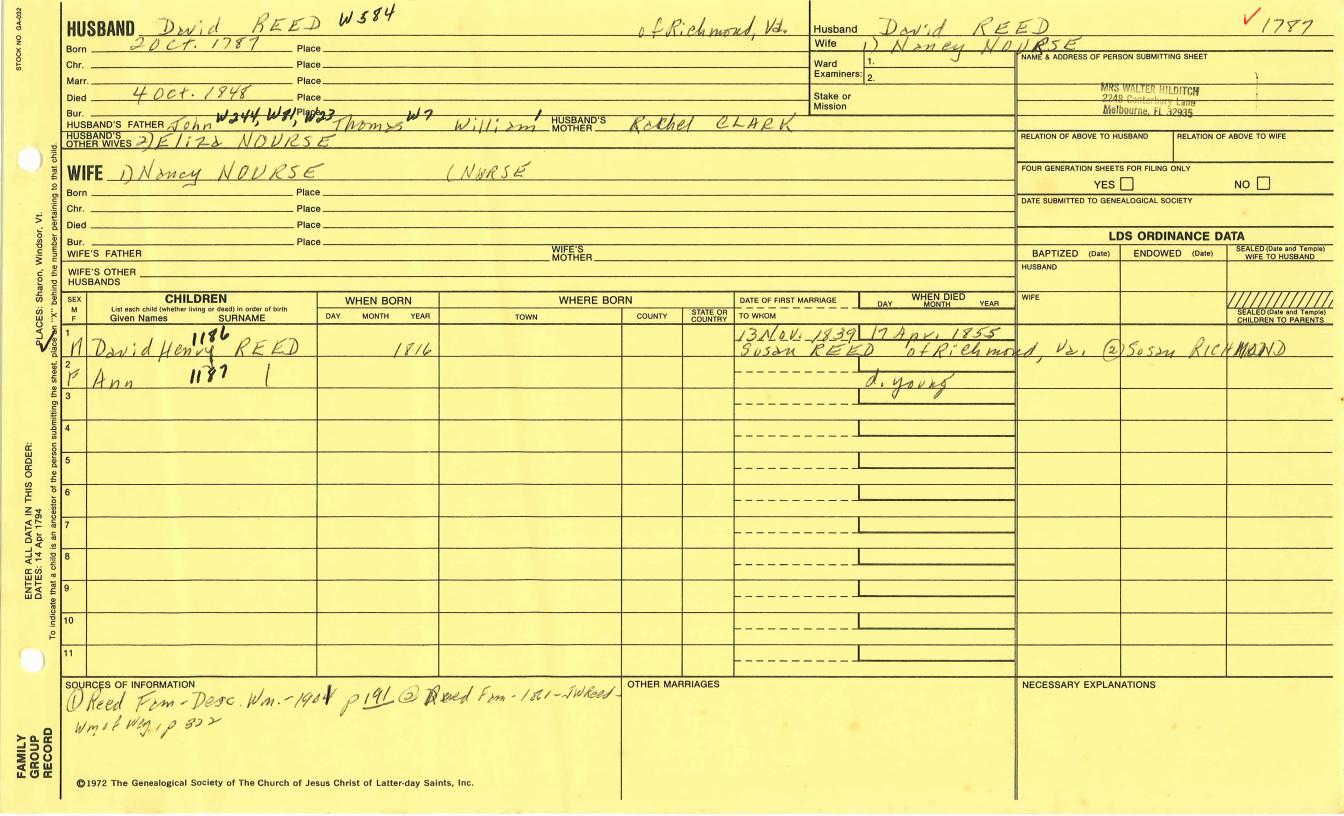 STOCK NO GA-032
HUSBAND David REED W584 of Richmond, Va.
Born 20 Oct. 1787 Place
Chr. Place
Marr. Place
Died 4 Oct. 1848 Place
Bur. Place
HUSBAND'S FATHER John W244, W81, W23 Thomas W7 William 1 HUSBAND'S MOTHER Rachel CLARK
HUSBAND'S OTHER WIVES 2) Eliza NOURSE
WIFE 1) Nancy NOURSE (NURSE
Born Place
Chr. Place
Died Place
Bur. Place
WIFE'S FATHER WIFE'S MOTHER
WIFE'S OTHER HUSBANDS
Husband David REED ✓ 1787
Wife 1) Nancy NOURSE
Ward Examiners: 1.
2.
Stake or Mission
NAME & ADDRESS OF PERSON SUBMITTING SHEET
MRS WALTER HILDITCH
2248 Canterbury Lane
Melbourne, FL 32935
RELATION OF ABOVE TO HUSBAND RELATION OF ABOVE TO WIFE
FOUR GENERATION SHEETS FOR FILING ONLY
YES NO
DATE SUBMITTED TO GENEALOGICAL SOCIETY
LDS ORDINANCE DATA
BAPTIZED (Date) ENDOWED (Date) SEALED (Date and Temple) WIFE TO HUSBAND
HUSBAND
WIFE
SEALED (Date and Temple) CHILDREN TO PARENTS
SEX M F
CHILDREN
List each child (whether living or dead) in order of birth
Given Names SURNAME
WHEN BORN
DAY MONTH YEAR
WHERE BORN
TOWN COUNTY STATE OR COUNTRY
DATE OF FIRST MARRIAGE
TO WHOM
WHEN DIED
DAY MONTH YEAR
1 1186 13 Nov. 1839 17 Apr. 1855
M David Henry REED 1816 Susan REED of Richmond, Va. (2) Susan RICHMOND
2
F Ann 1187 | d. young
3
4
5
6
7
8
9
10
11
SOURCES OF INFORMATION
(1) Reed Fam - Desc. Wm. - 1901 p 191 (2) Reed Fam - 1861 - JWReed -
Wm of Wey, p 322
OTHER MARRIAGES
NECESSARY EXPLANATIONS
©1972 The Genealogical Society of The Church of Jesus Christ of Latter-day Saints, Inc.
FAMILY GROUP RECORD
ENTER ALL DATA IN THIS ORDER:
DATES: 14 Apr 1794
PLACES: Sharon, Windsor, Vt.
To indicate that a child is an ancestor of the person submitting the sheet, place an "X" behind the number pertaining to that child.